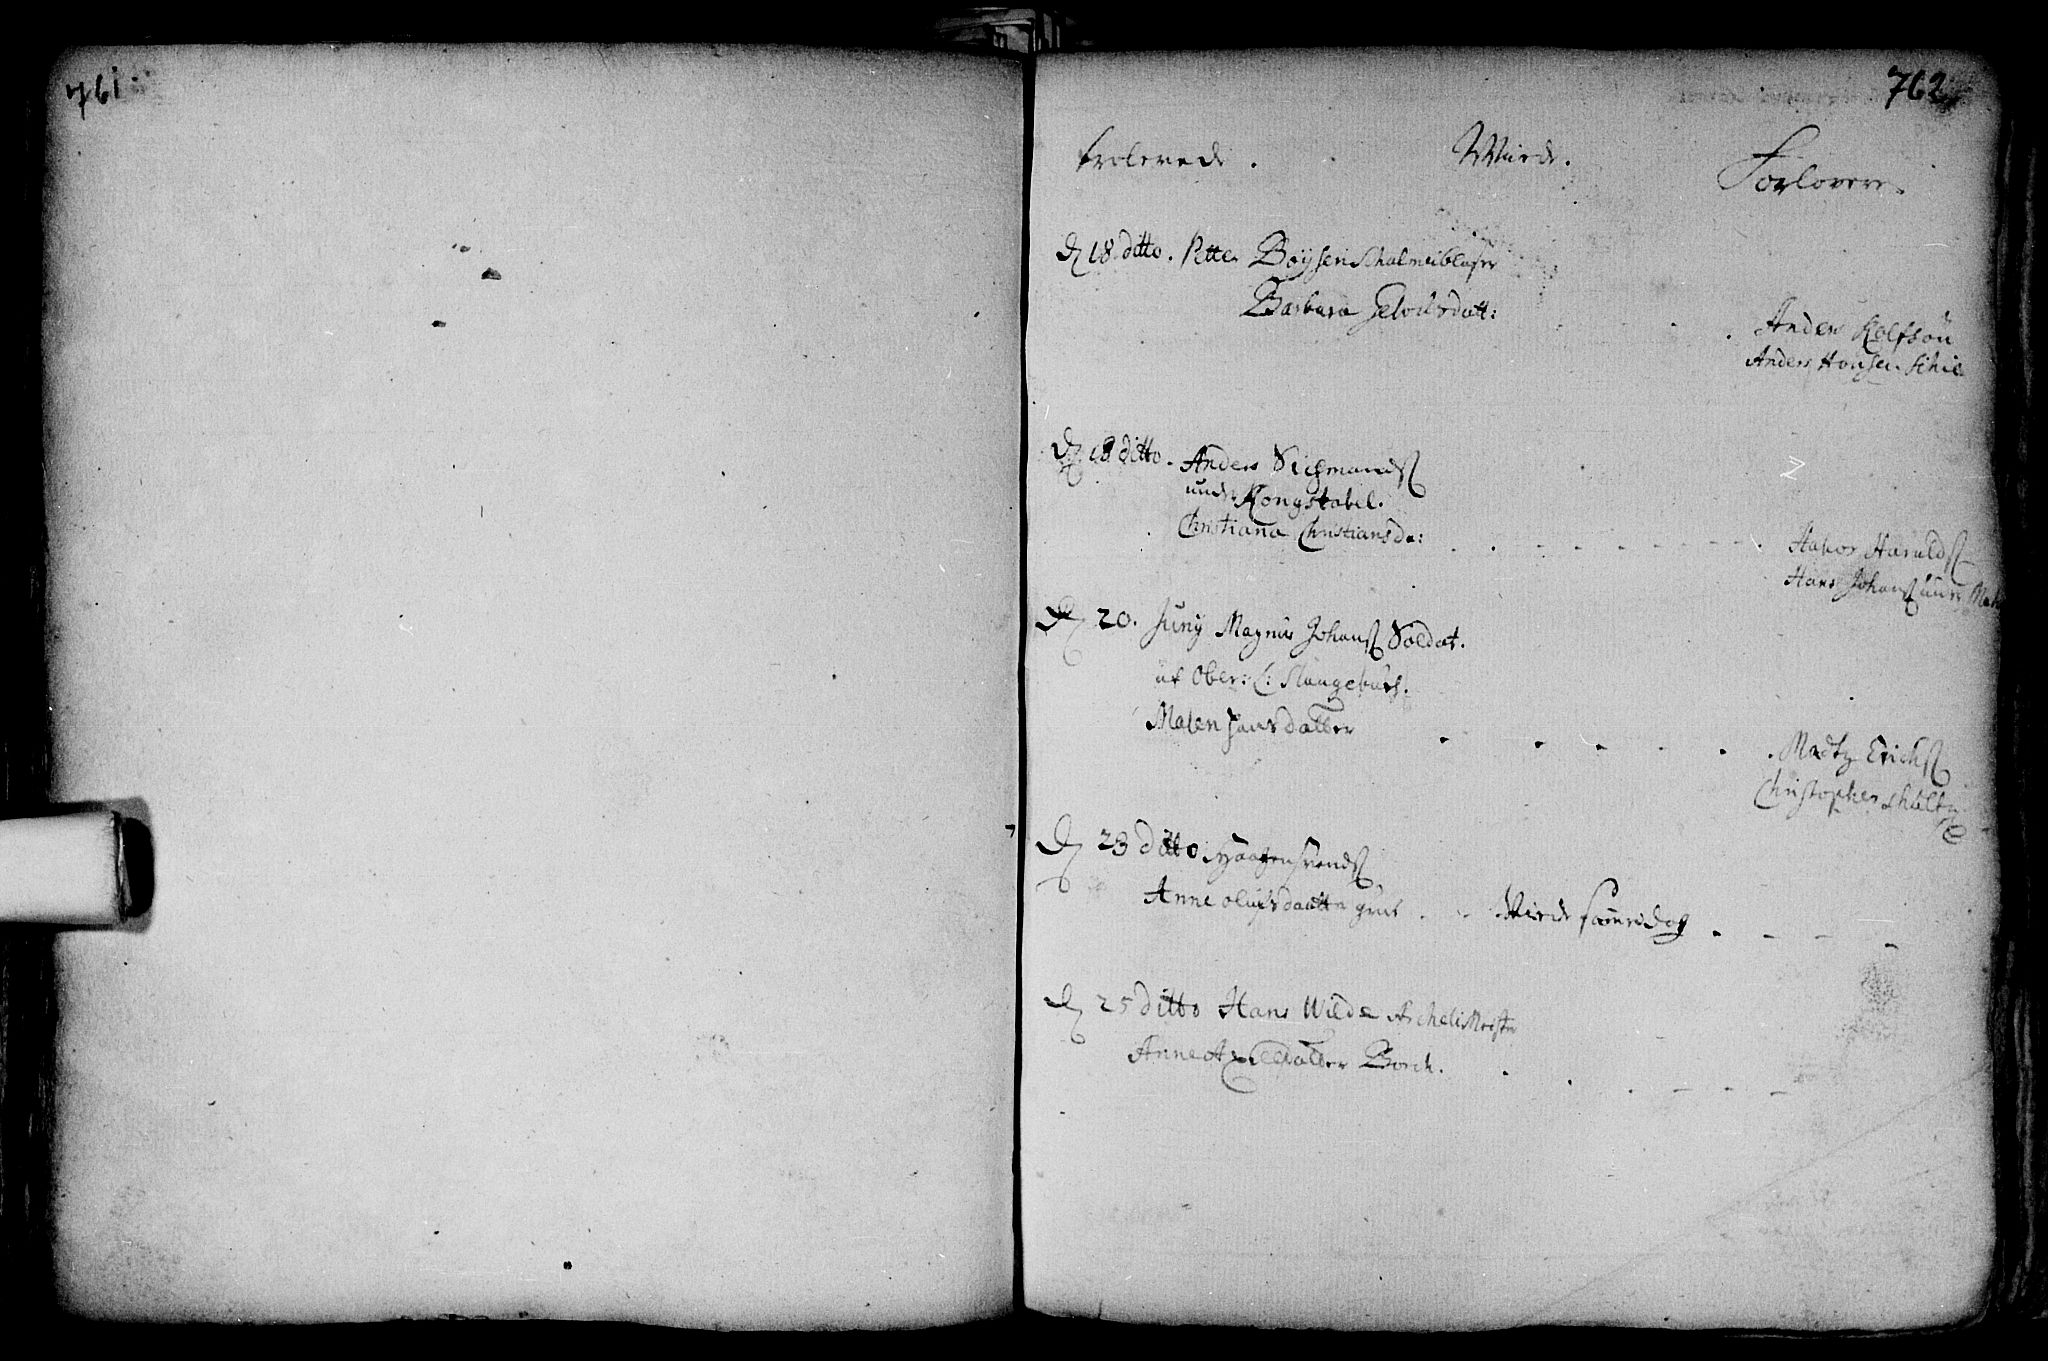 761
762
Trolovede. Wiede. Forlovere.
D 18 ditto. Petter Boysen Schalmeiblaser
Barbara Jelουrsdatt:
Anders Rolfsön
Anders Hansen Schie
D 18 ditto. Anders Sigmands
under Kongstabel.
Christiana Christiansda:
Haral Haralds
Hans Johans
D 20. Juny Magnus Johans Soldat.
af Ober: L:
Malen Jansdatter
Madtz Erichs
Christopher Shultz
D 23 Ditto Haagen Svends
Anne Olufsdaatter grut Viede samme dag
D 25 ditto Hans Wilde Archeli Mester
Anne Axelldatter Borch.